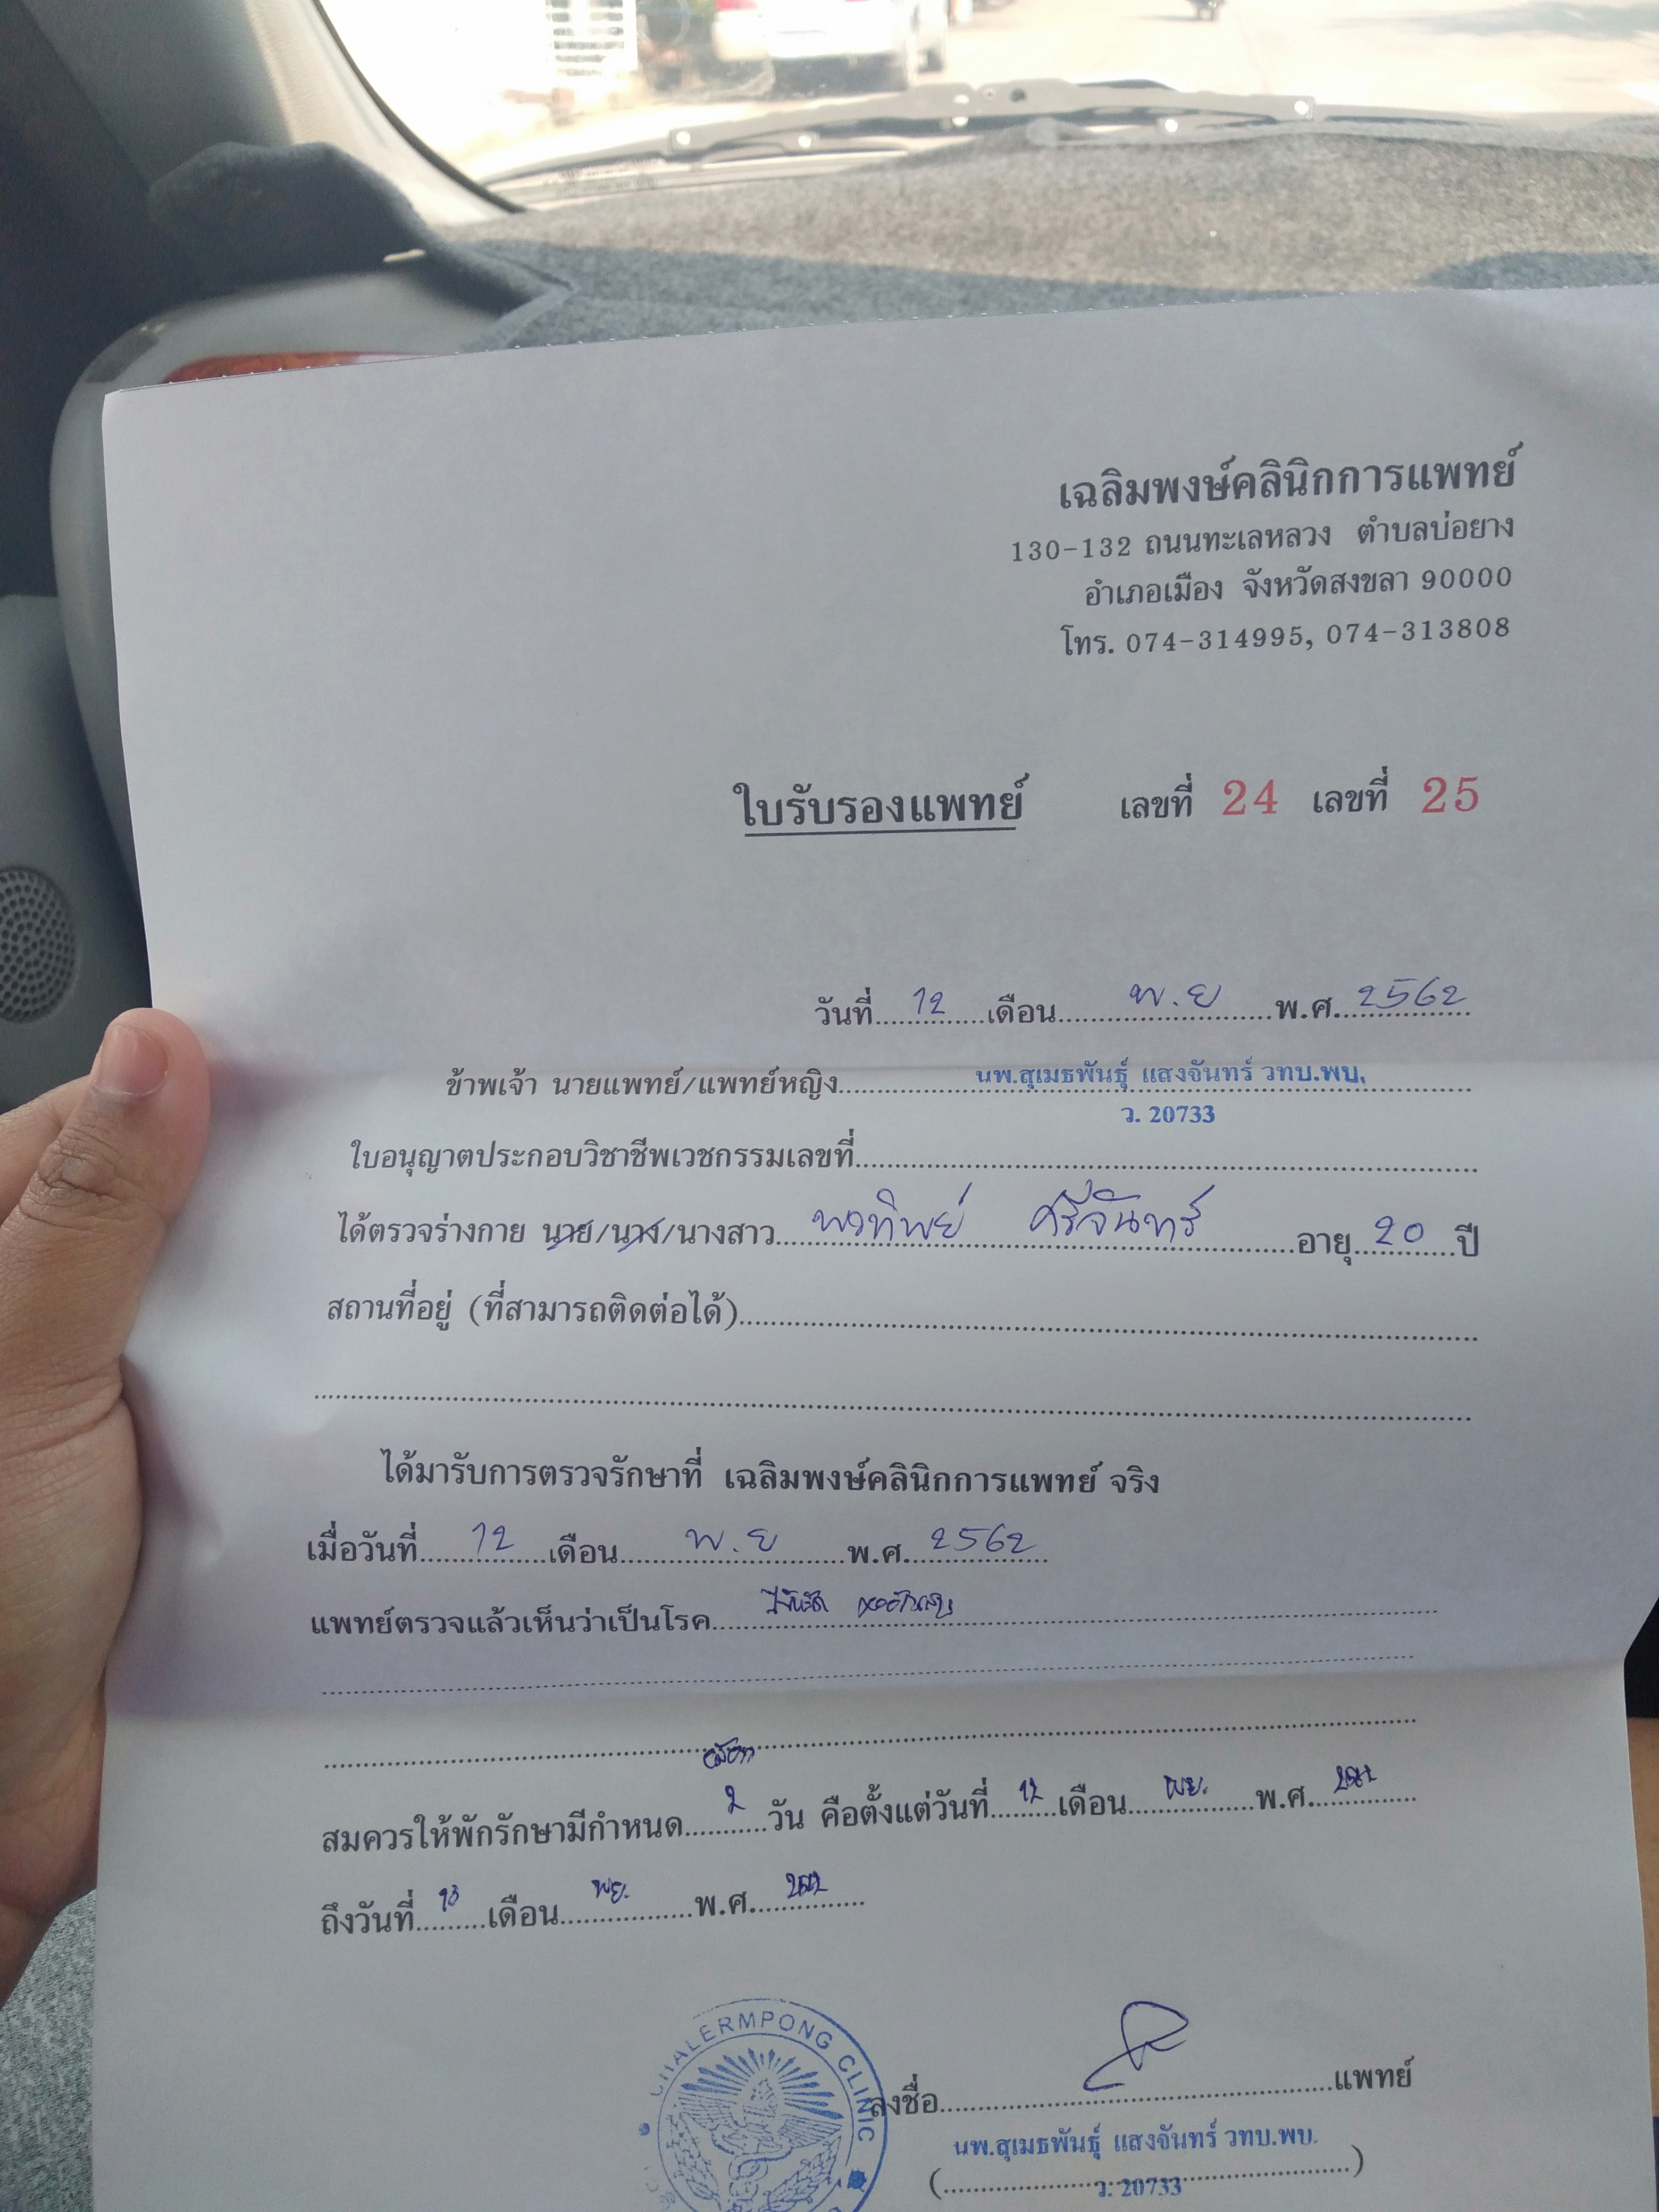 เฉลิมพงษ์คลินิกการแพทย์
130-132 ถนนทะเลหลวง ตำบลบ่อยาง
อำเภอเมือง จังหวัดสงขลา 90000
โทร. 074-314995, 074-313808
ใบรับรองแพทย์ เลขที่ 24 เลขที่ 25
วันที่ 12 เดือน พ.ย พ.ศ. 2562
ข้าพเจ้า นายแพทย์/แพทย์หญิง นพ.สุเมธพันธุ์ แสงจันทร์ วทบ.พบ.
ว. 20733
ใบอนุญาตประกอบวิชาชีพเวชกรรมเลขที่
ได้ตรวจร่างกาย นาย/นาง/นางสาว พรทิพย์ ศรีจันทร์ อายุ 20 ปี
สถานที่อยู่ (ที่สามารถติดต่อได้)
ได้มารับการตรวจรักษาที่ เฉลิมพงษ์คลินิกการแพทย์ จริง
เมื่อวันที่ 12 เดือน พ.ย พ.ศ. 2562
แพทย์ตรวจแล้วเห็นว่าเป็นโรค ไข้หวัด
สมควรให้พักรักษามีกำหนด 2 วัน คือตั้งแต่วันที่ 12 เดือน พย. พ.ศ. 2562
ถึงวันที่ 13 เดือน พย. พ.ศ. 2562
CHALERMPONG CLINIC
ลงชื่อ แพทย์
นพ.สุเมธพันธุ์ แสงจันทร์ วทบ.พบ.
( )
ว. 20733